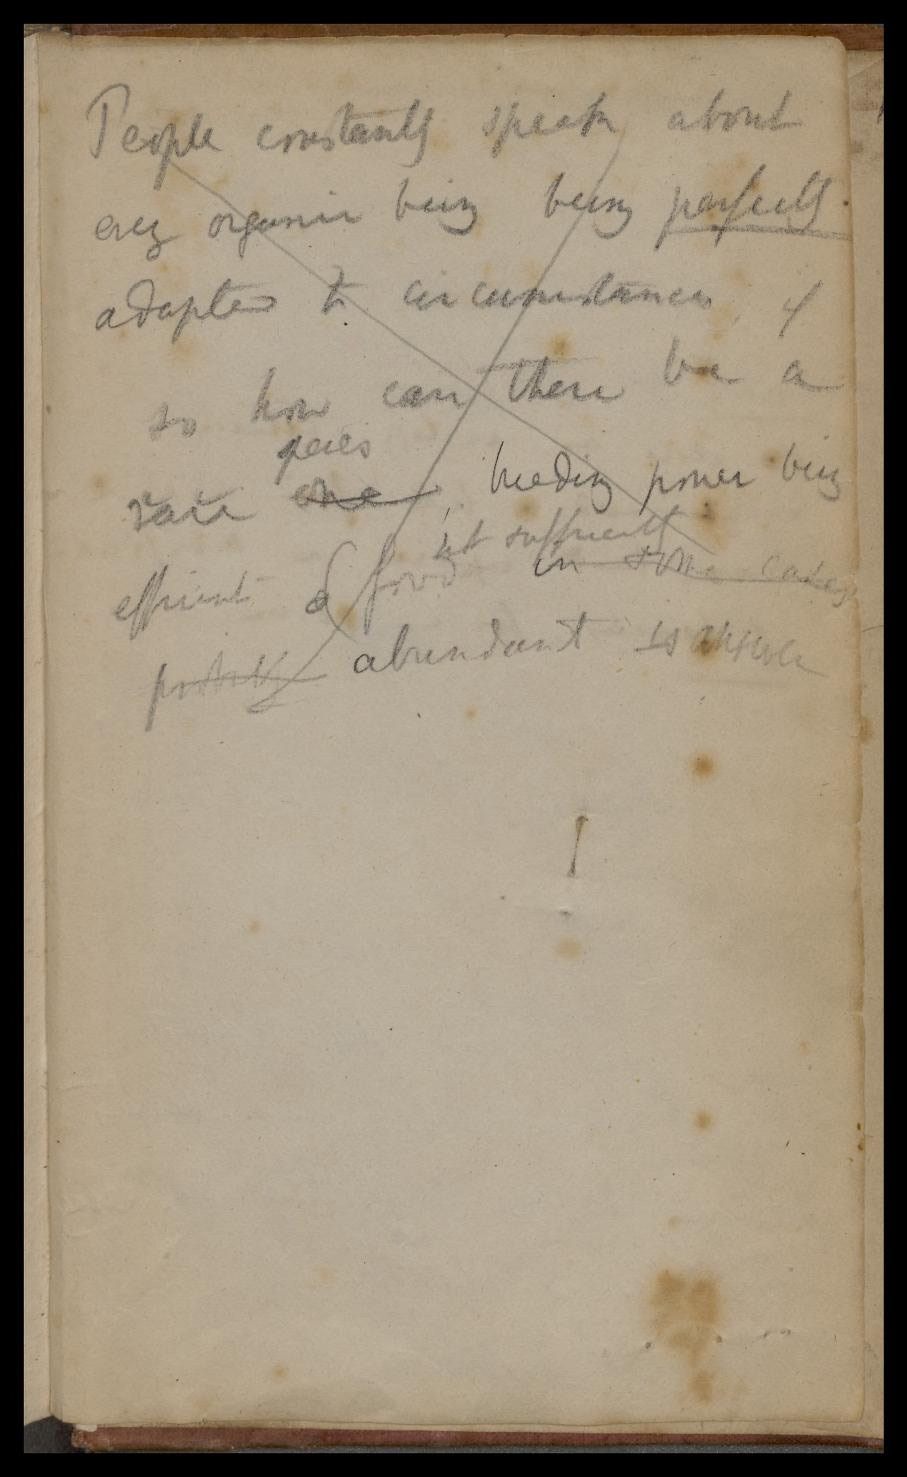 People constantly speak about
every organic being being perfectly
adapted to circumstances, if
so how can there be a
species
rare one, breeding power being
not sufficiently
efficient & food in some cases
abundant is answer